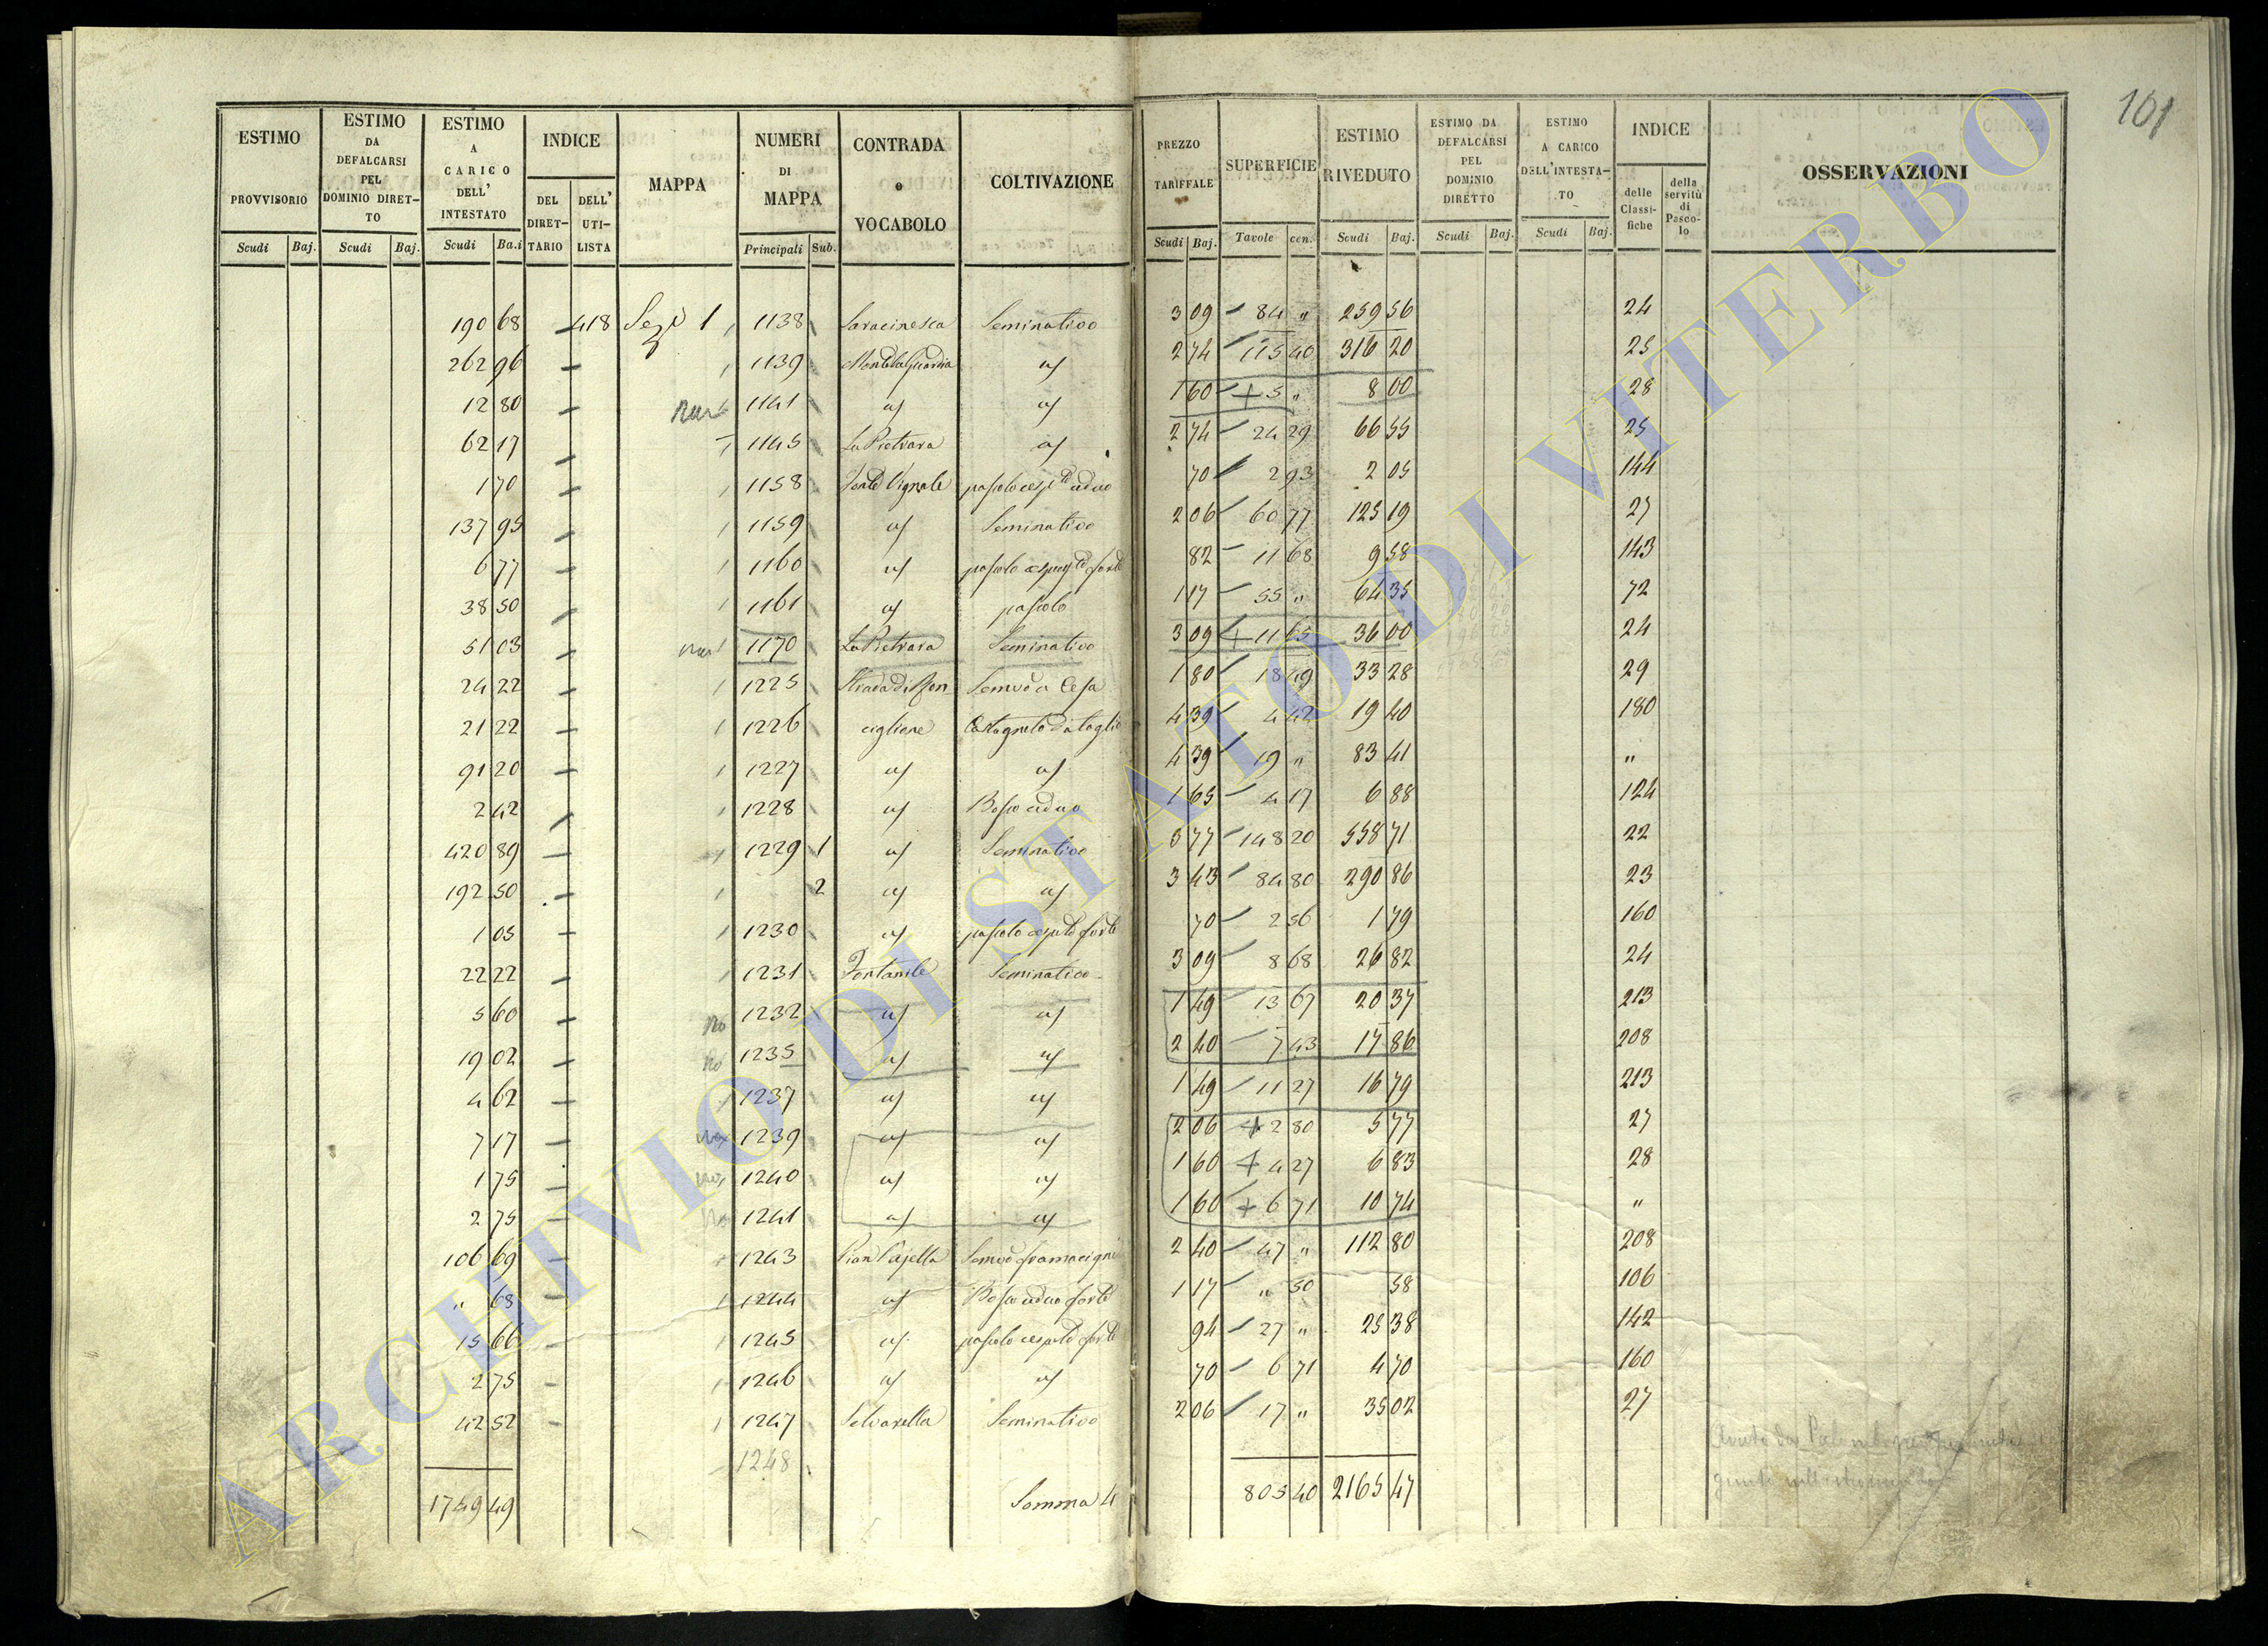 101
ESTIMO PROVVISORIO | ESTIMO DA DEFALCARSI PEL DOMINIO DIRETTO | ESTIMO A CARICO DELL' INTESTATO | INDICE DEL DIRETTARIO | DELL' UTILISTA | MAPPA | NUMERI DI MAPPA | CONTRADA o VOCABOLO | COLTIVAZIONE | PREZZO TARIFFALE | SUPERFICIE | ESTIMO RIVEDUTO | ESTIMO DA DEFALCARSI PEL DOMINIO DIRETTO | ESTIMO A CARICO DELL'INTESTATO | INDICE delle Classifiche | della servitù di Pascolo | OSSERVAZIONI
Scudi | Baj. | Scudi | Baj. | Scudi | Ba.i | Principali | Sub. | Scudi | Baj. | Tavole | cen. | Scudi | Baj. | Scudi | Baj. | Scudi | Baj.
190 68 — 418 Sez. 1 1138 Saracinesca Seminativo 3 09 84 " 259 56 24
262 96 — 1139 Monte la Guardia a/ 2 74 115 40 316 20 25
12 80 — 1141 a/ a/ 1 60 + 5 " 8 00 28
62 17 — 1145 La Pietrara a/ 2 74 24 29 66 55 25
1 70 — 1158 Fonte Vignale 70 2 93 2 05 144
137 95 — 1159 a/ Seminativo 2 06 60 77 125 19 27
6 77 — 1160 a/ 82 11 68 9 58 143
38 50 — 1161 a/ pascolo 1 17 55 " 64 35 72
51 03 — 1170 La Pietrara Seminativo 3 09 + 11 65 36 00 24
24 22 — 1 1225 Strada di Ron 1 80 18 49 33 28 29
21 22 — 1 1226 ciglione Castagneto da taglio 4 39 4 42 19 40 180
91 20 — 1 1227 a/ a/ 4 39 19 " 83 41 "
2 42 — 1 1228 a/ Bosco ceduo 1 65 4 17 6 88 124
420 89 — 1 1229 1 a/ Seminativo 3 77 148 20 558 71 22
192 50 — 1 2 a/ a/ 3 43 84 80 290 86 23
1 05 — 1 1230 a/ pascolo cespto forte 70 2 56 1 79 160
22 22 — 1 1231 Fontanile Seminativo 3 09 8 68 26 82 24
5 60 — no 1232 a/ a/ 1 49 13 67 20 37 213
19 02 — no 1235 a/ a/ 2 40 7 43 17 86 208
4 62 — 1237 a/ a/ 1 49 11 27 16 79 213
7 17 — 1239 a/ a/ 2 06 + 2 80 5 77 27
1 75 — 1240 a/ a/ 1 60 + 4 27 6 83 28
2 75 — no 1241 a/ a/ 1 60 + 6 71 10 74 "
106 69 — 1243 Pian Cajella 2 40 47 " 112 80 208
" 68 — 1 1244 a/ Bosco ceduo forte 1 17 " 50 58 106
15 66 — 1 1245 a/ pascolo cespto forte 94 27 " 25 38 142
2 75 — 1 1246 a/ a/ 70 6 71 4 70 160
42 52 — 1 1247 Selvarella Seminativo 2 06 17 " 35 02 27
1248
1749 49 Somma 4 803 40 2165 47
ARCHIVIO DI STATO DI VITERBO